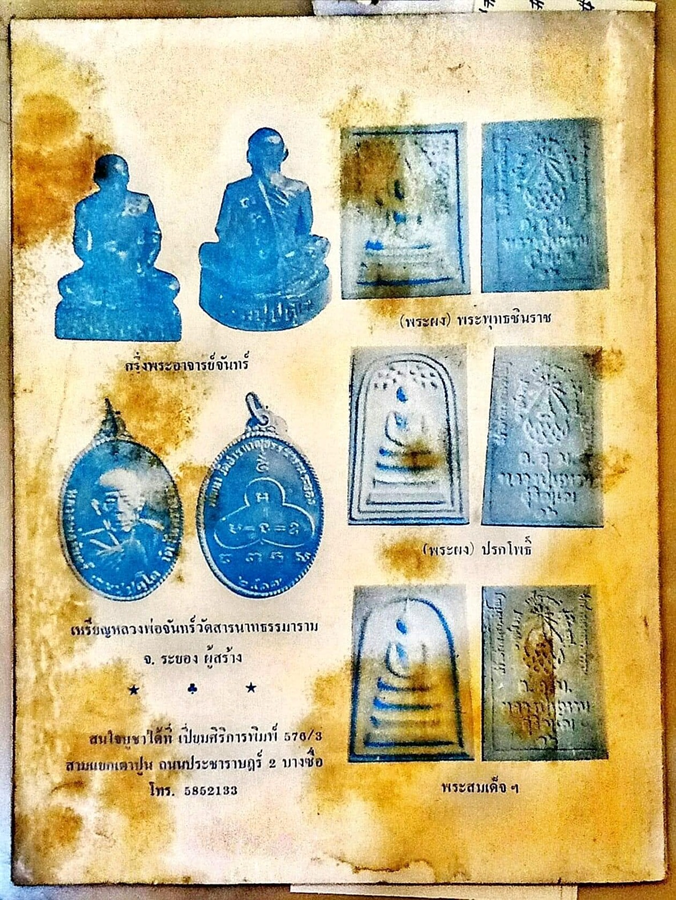 กริ่งพระอาจารย์จันทร์
(พระผง) พระพุทธชินราช
(พระผง) ปรกโพธิ์
เหรียญหลวงพ่อจันทร์วัดสารนาทธรรมาราม
จ. ระยอง ผู้สร้าง
สนใจบูชาได้ที่ เปี่ยมศิริการพิมพ์ 576/3
สามแยกเตาปูน ถนนประชาราษฎร์ 2 บางซื่อ
โทร. 5852133
พระสมเด็จ ฯ